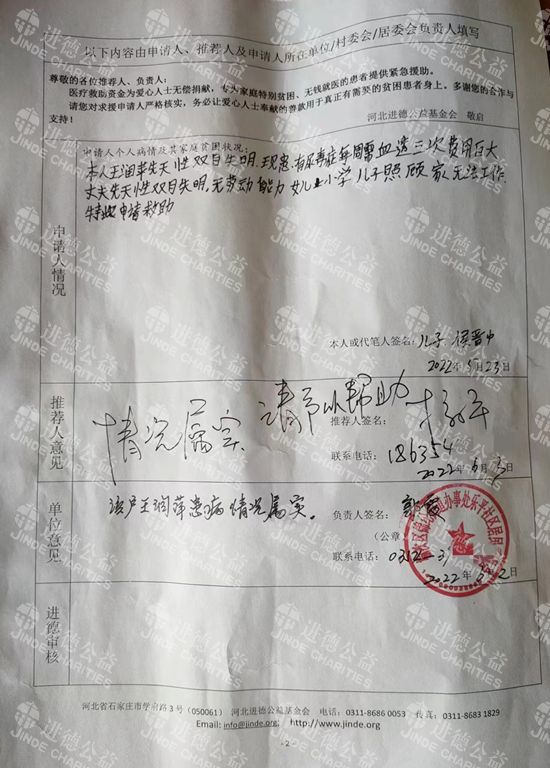 以下内容由申请人、推荐人及申请人所在单位/村委会/居委会负责人填写
尊敬的各位推荐人、负责人：
医疗救助资金为爱心人士无偿捐献，专为家庭特别贫困、无钱就医的患者提供紧急援助。
请您对求援申请人严格核实，务必让爱心人士奉献的善款用于真正有需要的贫困患者身上。多谢您的合作与
支持！
河北进德公益基金会 敬启
申请人情况
申请人个人病情及其家庭贫困状况：
本人王润苹先天性双目失明，现患有尿毒症每周需血透三次费用巨大
丈夫先天性双目失明，无劳动能力 女儿上小学 儿子照顾家，无法工作，
特此申请救助
本人或代笔人签名：儿子 侯晋中
2022年5月23日
推荐人意见
情况属实 请予以帮助
推荐人签名：
联系电话：186354
2022年6月2日
单位意见
该户王润苹患病情况属实。
负责人签名：
（公章）
联系电话：0352-31
2022年6月2日
进德审核
河北省石家庄市学府路3号（050061） 河北进德公益基金会 电话：0311-8686 0053 传真：0311-8683 1829
Email: info@jinde.org; http://www.jinde.org
- 2 -
进德公益
JINDE CHARITIES